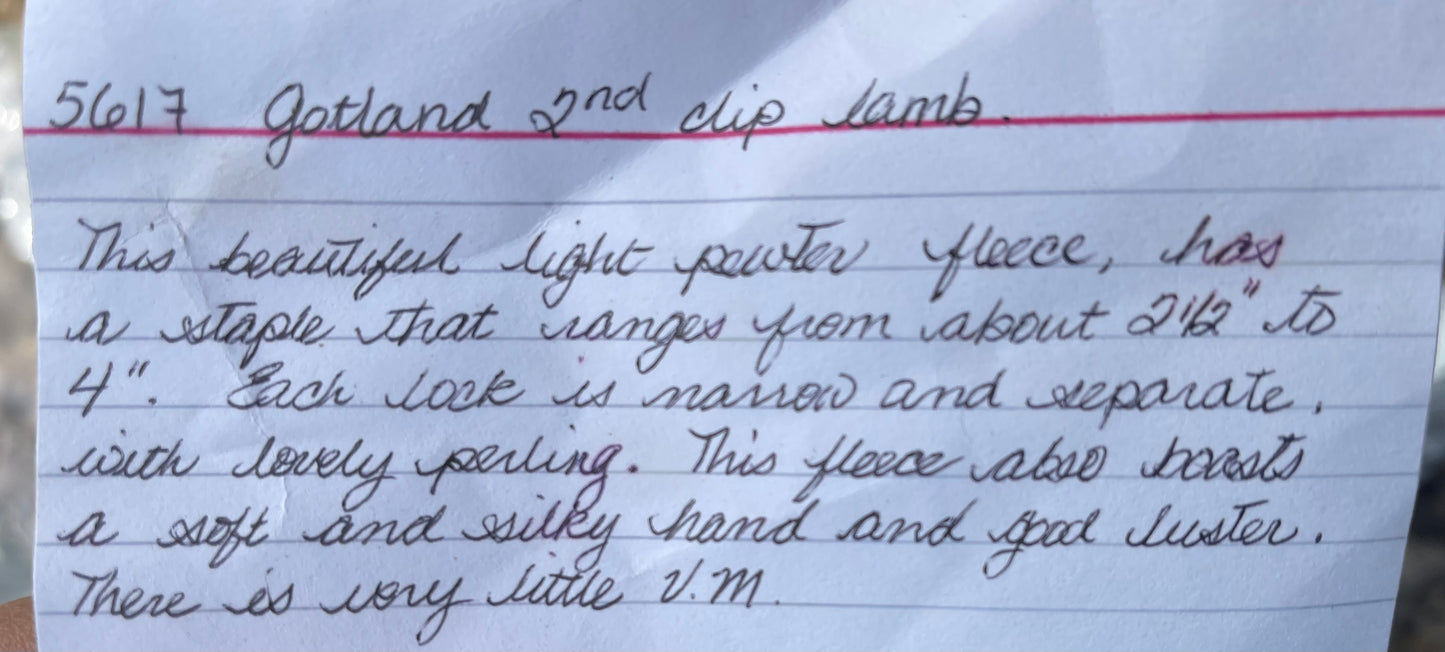 5617 Gotland 2nd clip lamb.
This beautiful light pewter fleece, has
a staple that ranges from about 2 1/2" to
4". Each lock is narrow and separate,
with lovely perling. This fleece also boasts
a soft and silky hand and good luster.
There is very little V.M.